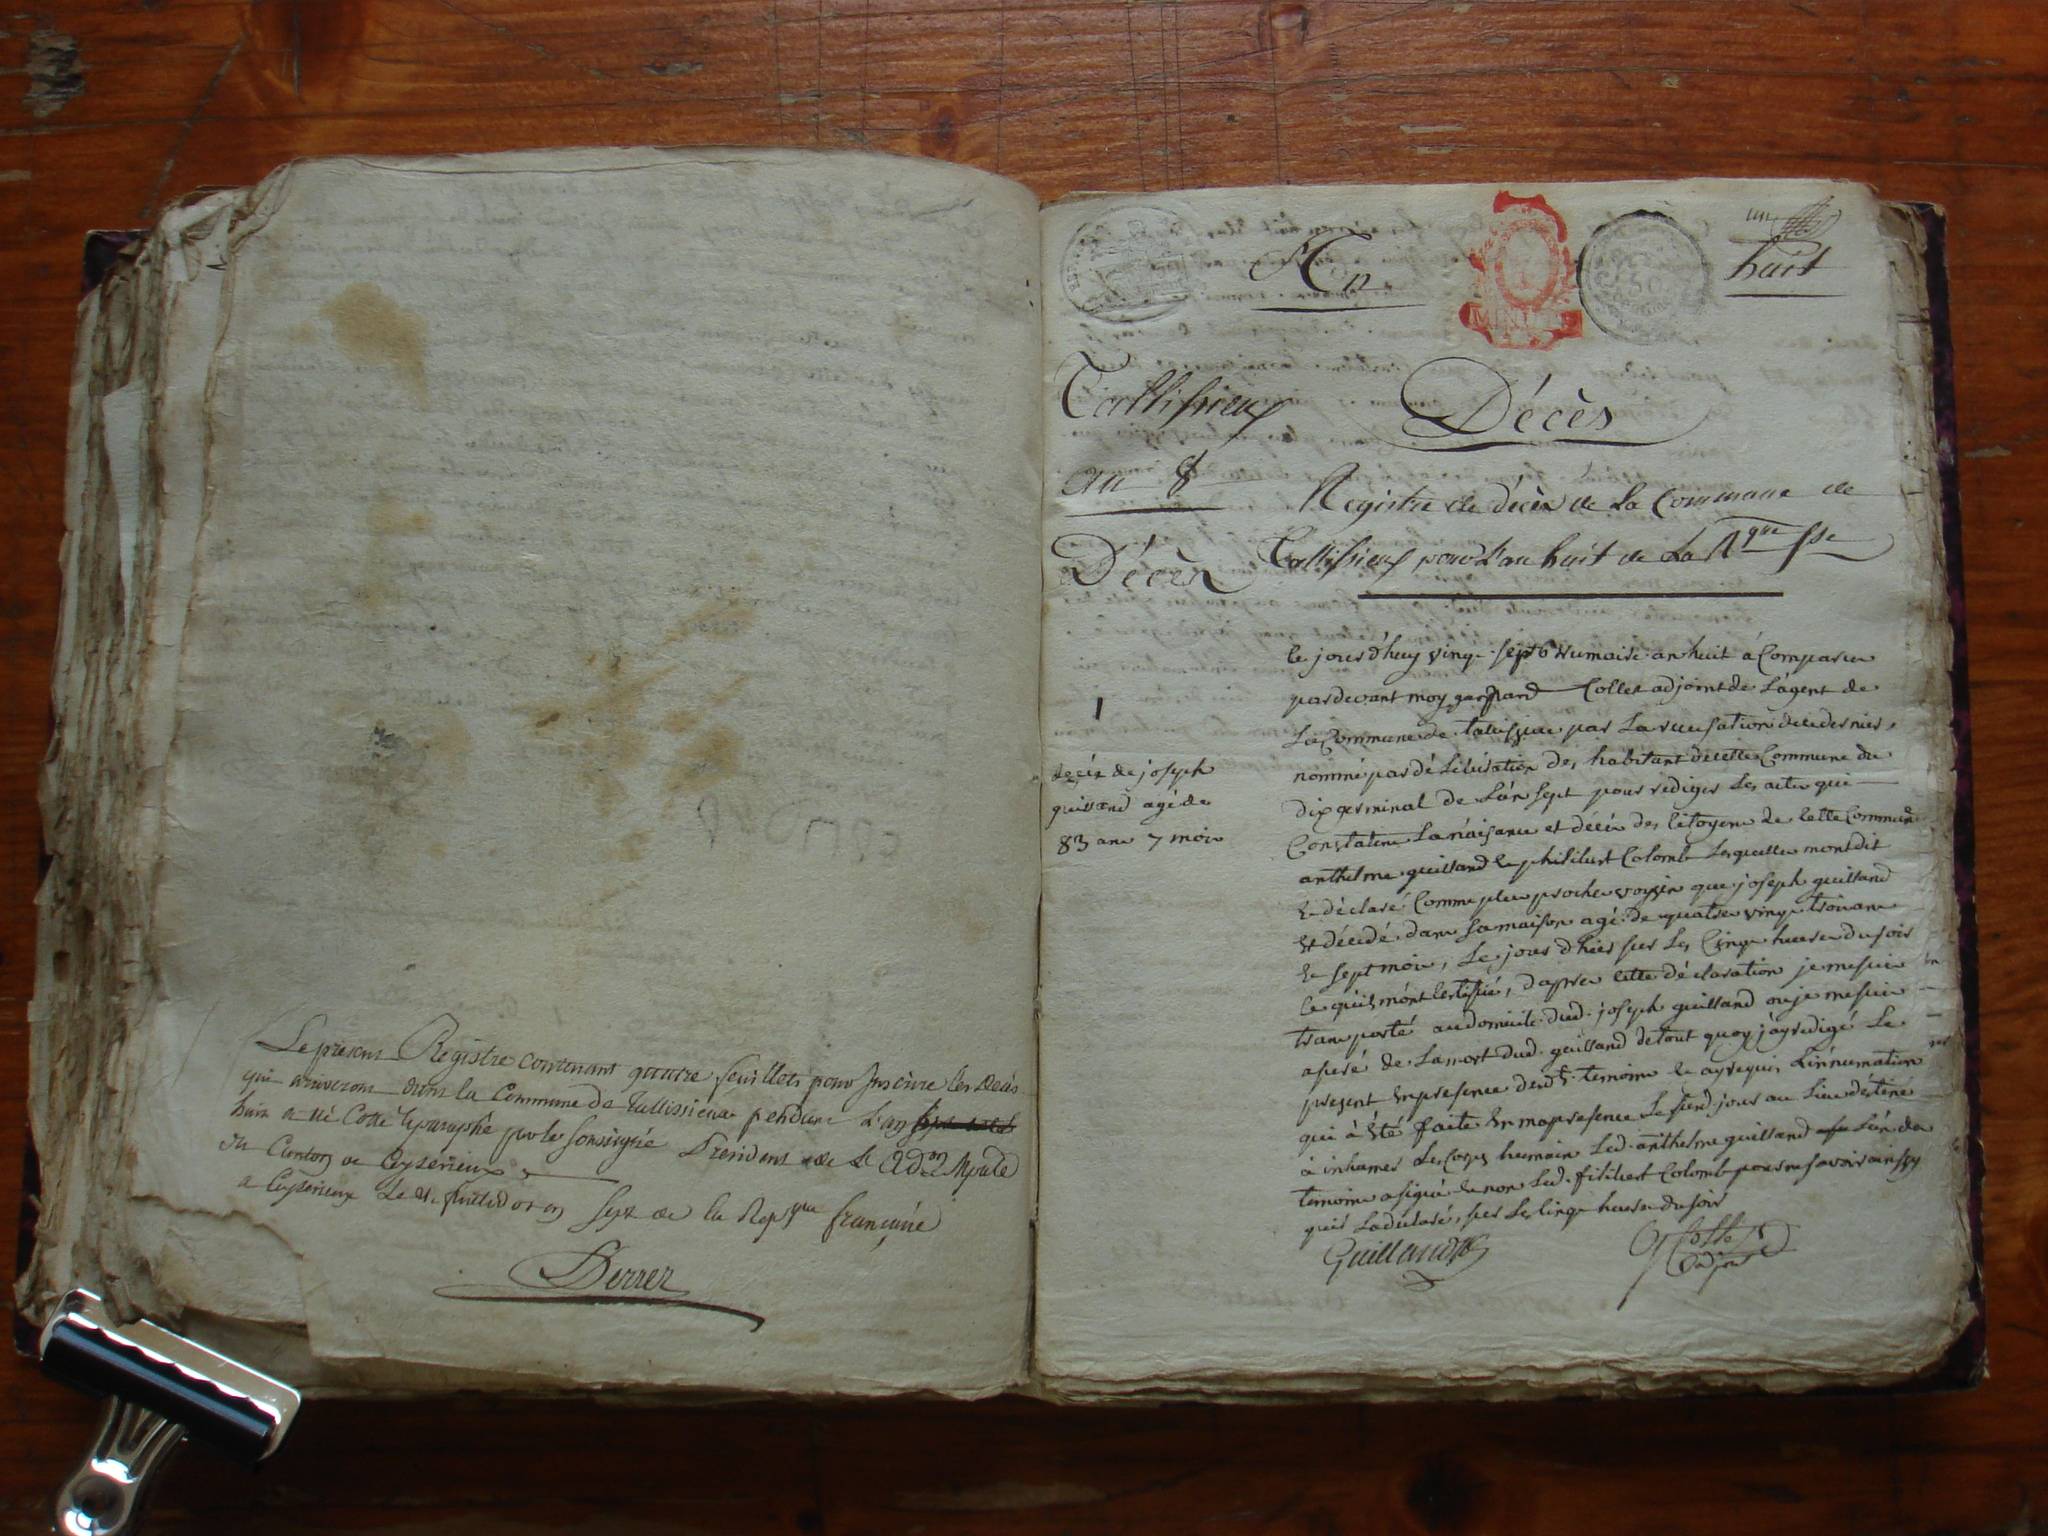 Le present Registre contenant quatre feuillets pour Inscrire les Decès
qui arriveront dans la Commune de Tallissieux pendant L'an
huit a été Cotté & paraphé par le soussigné President de L' Adon Mpale
du Canton de Ceyserieux
a Ceyserieux Le fructidor an Sept de la Repque française
Derrer
An
huit
un
Tallissieux
Décès
an 8
Registre de décès de La Commune de
Décès
Tallissieux pour L'an huit de La Rque fse
1
décès de joseph
guilland agé de
83 ans 7 mois
le jourd'huy vingt sept brumaire an huit à Comparu
pardevant moy gaspard Collet adjoint de L'agent de
La Commune de talissieu par La recusation de ce dernier,
nommé par déliberation des habitant dicelle Commune du
dix germinal de L'an sept pour rediger Les actes qui
Constatent La naisance et décès des Citoyens de Cette Commune
anthelme guilland & philibert Colomb Lesquelles mont dit
& déclaré Comme plus proche voyzin que joseph guilland
est décédé dans sa maison agé de quatre vingt trois ans
& sept mois, Le jour d'hier sur Les Cinq heures du soir
ce quils m'ont Certifié, d'apres cette déclaration je me suis
transporté au domicile dud. joseph guilland ou je me suis
asuré de La mort dud. guilland de tout quoy j'ay redigé Le
present en presence desdts temoins & ay requis L'innumation
qui à été faite en ma presence Le jour au Lieu déstiné
à inhumer Les Corps humain Led. anthelme guilland L'un des
temoins a signé & non Led. filibert Colomb pour ne savoir ainsy
quil La déclaré, sur Les Cinq heures du soir
Guilland
G Collet
adjoint